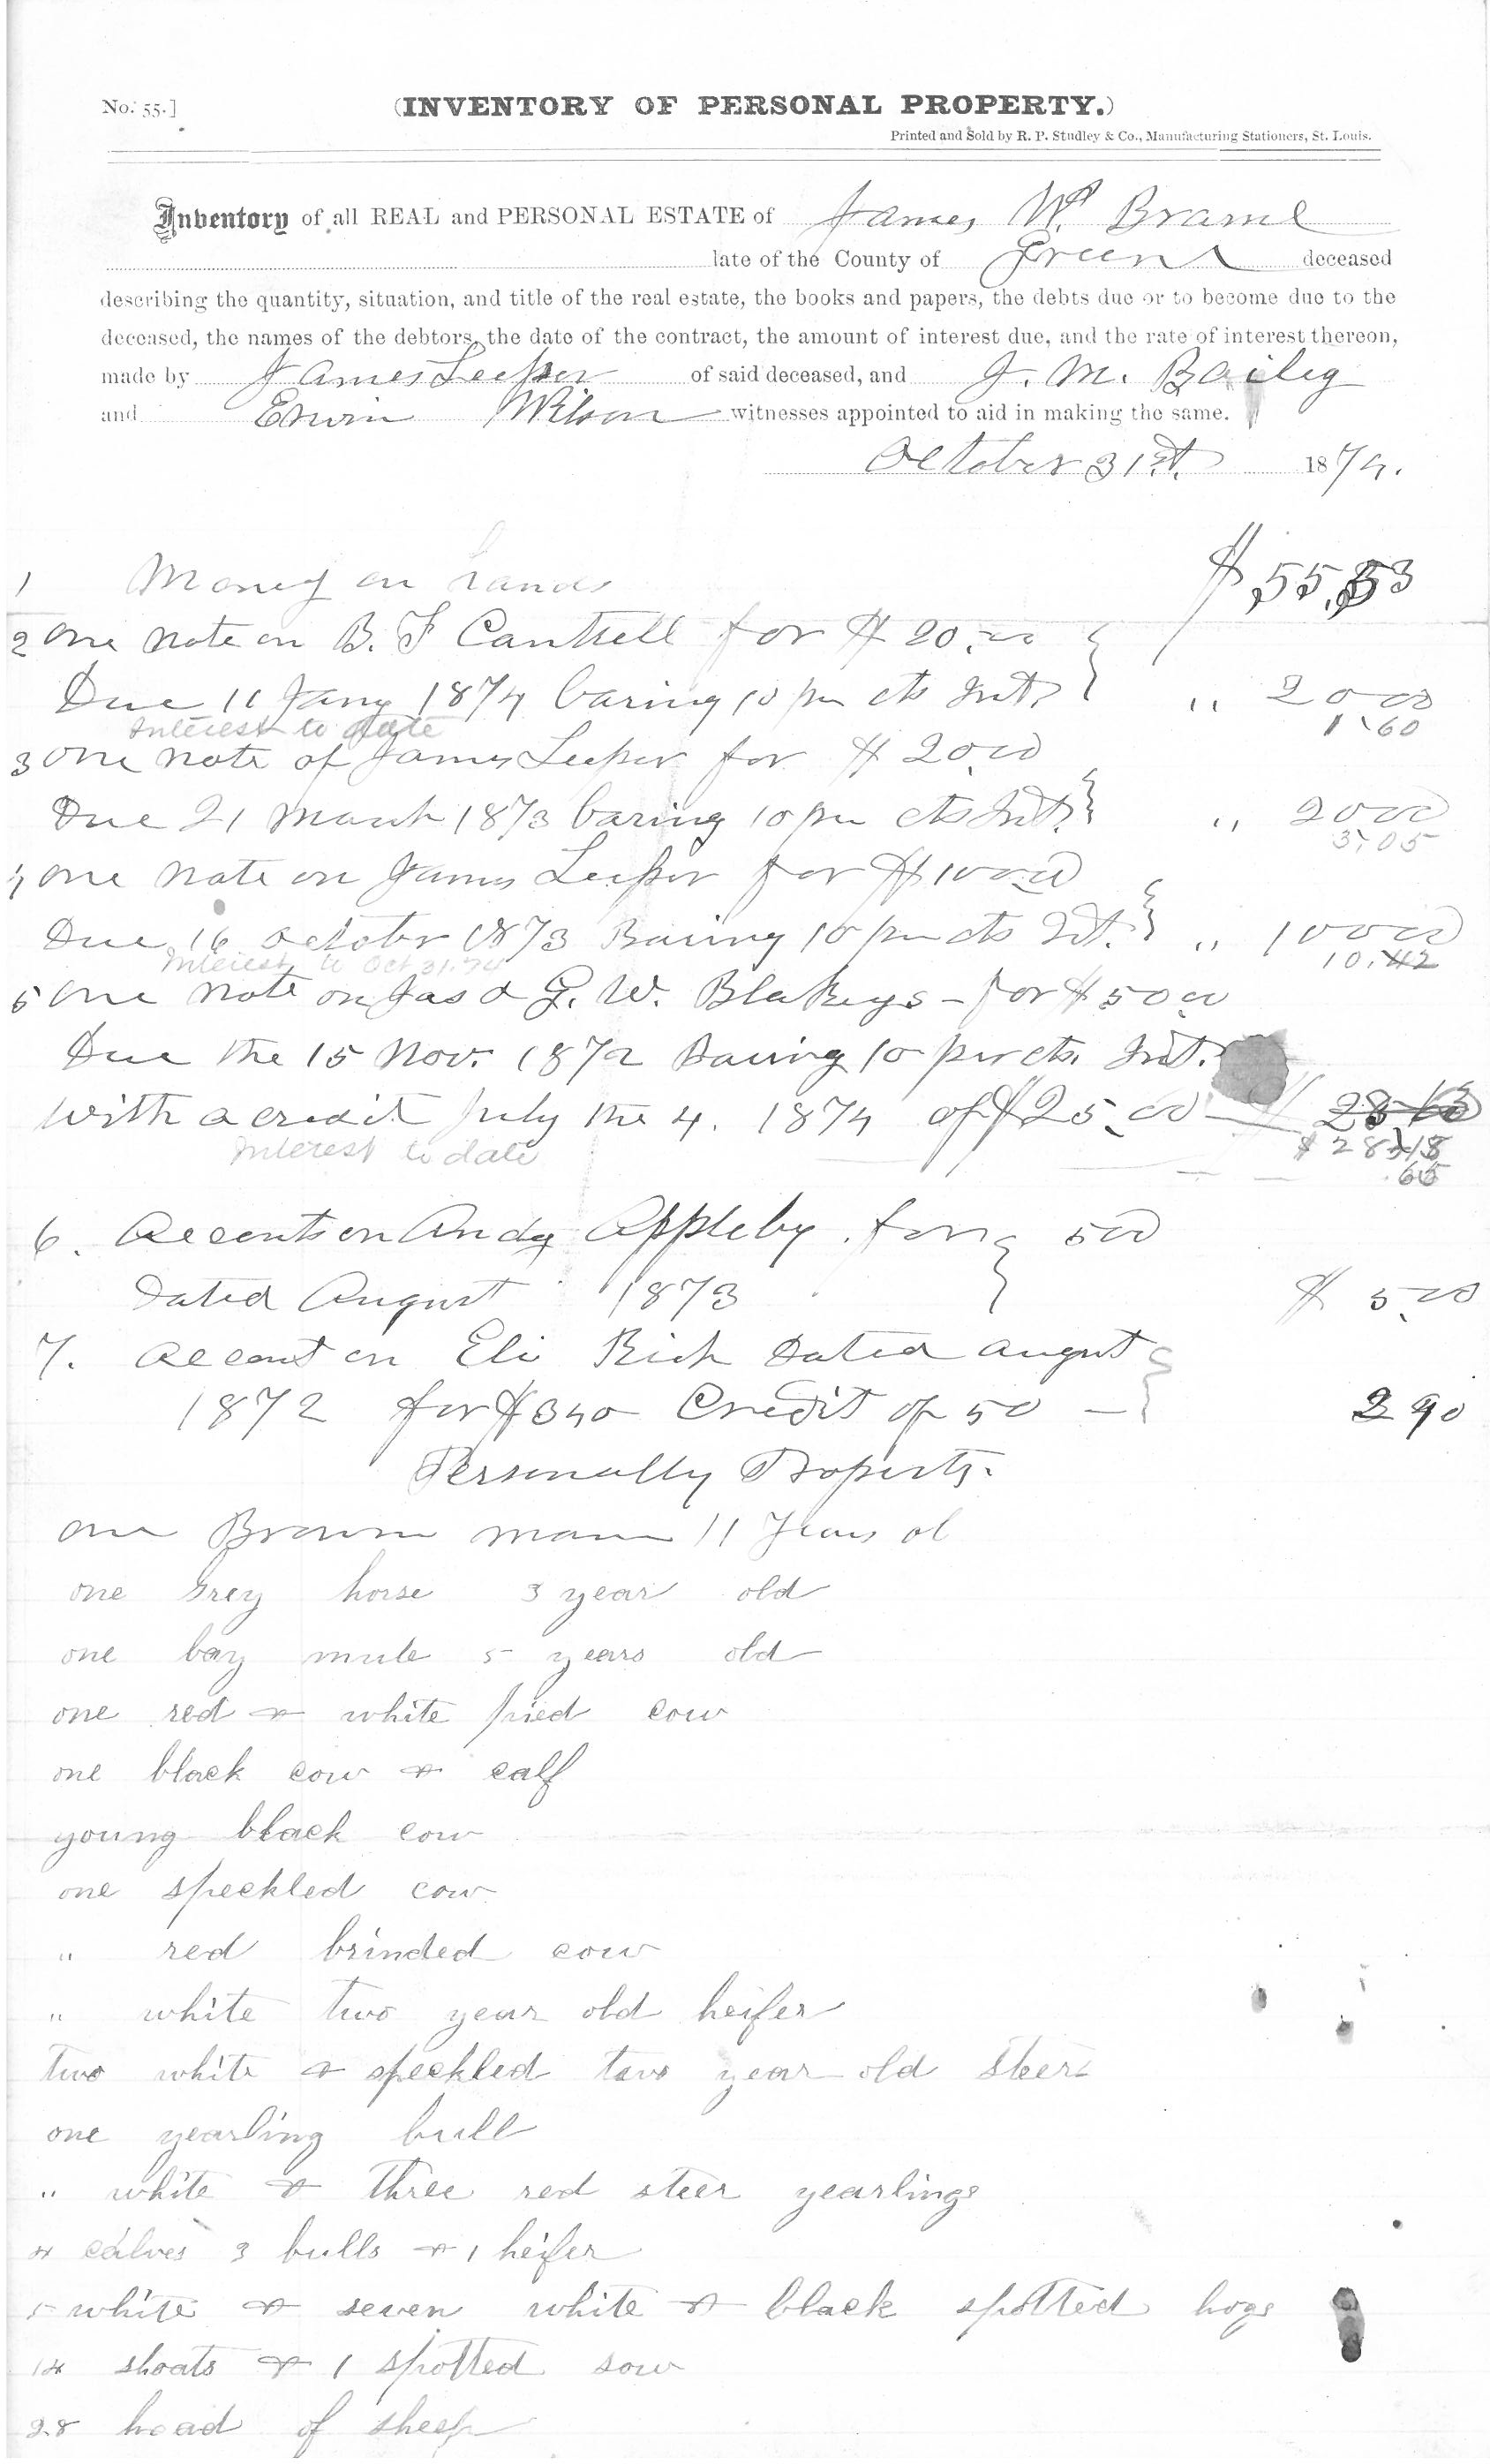 No. 55.]
(INVENTORY OF PERSONAL PROPERTY.)
Printed and Sold by R. P. Studley & Co., Manufacturing Stationers, St. Louis.
Inventory of all REAL and PERSONAL ESTATE of James W. Brame
late of the County of Green deceased
describing the quantity, situation, and title of the real estate, the books and papers, the debts due or to become due to the
deceased, the names of the debtors, the date of the contract, the amount of interest due, and the rate of interest thereon,
made by James Leeper of said deceased, and J. M. Baily
and Erwin Wilson witnesses appointed to aid in making the same.
October 31st. 1874.
1 Money on hand $ 55.53
2 One note on B. F Cantrell for $ 20.00
Due 11 Jany 1874 baring 10 per cts Int. " 20 00
Interest to date 1.60
3 One note of James Leeper for $ 20.00
Due 21 March 1873 baring 10 per cts Int. " 20 00
3.05
4 One note on James Leeper for $ 100.00
Due 16 October 1873 Baring 10 per cts Int. " 100 00
Interest to Oct 31.74 10.42
5 One note on Jas & G. W. Blakeys - for $ 50.00
Due the 15 Nov. 1872 Baring 10 per cts. Int.
With a credit July the 4. 1874 of $ 25.00
$ 28.18
Interest to date .65
6. Accounts on Andy Appleby. for 5 00
Dated August 1873 $ 5.00
7. Account on Eli Rich Dated august
1872 for $ 340 Credit of 50 — 2 90
Personally Property.
one Brown mare 11 Years ol
one grey horse 3 year old
one bay mule 5 years old
one red & white pied cow
one black cow & calf
young black cow
one speckled cow
" red brinded cow
" white two year old heifer
two white & speckled two year old steers
one yearling bull
" white & three red steer yearlings
4 calves 3 bulls & 1 heifer
5 white & seven white & black spotted hogs
14 shoats & 1 spotted sow
28 head of sheep